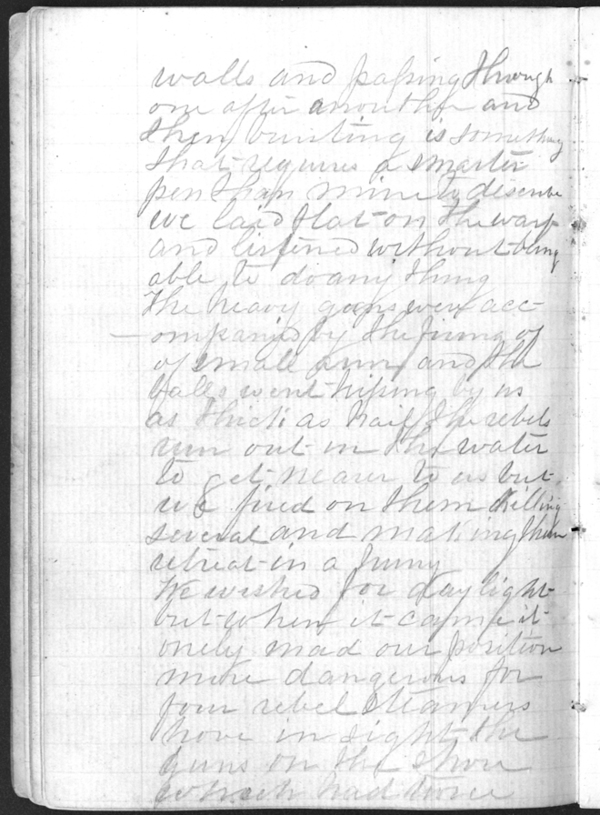 walls and passing through
one after anouther and
then bursting is something
that requires a smarter
pen than mine to describe
we laid flat on the warf
and listened without being
able to do any thing
The heavy guns were acc-
ompanied by the firing of
of small arms and the
balls went hissing by us
as thick as hail the rebels
run out in the water
to get nearer to us but
we fired on them killing
several and making them
retreat in a hurry
We wished for daylight
but when it came it
onely mad our position
more dangerous for
four rebel steamers
hove in sight the
guns on the shore
which had